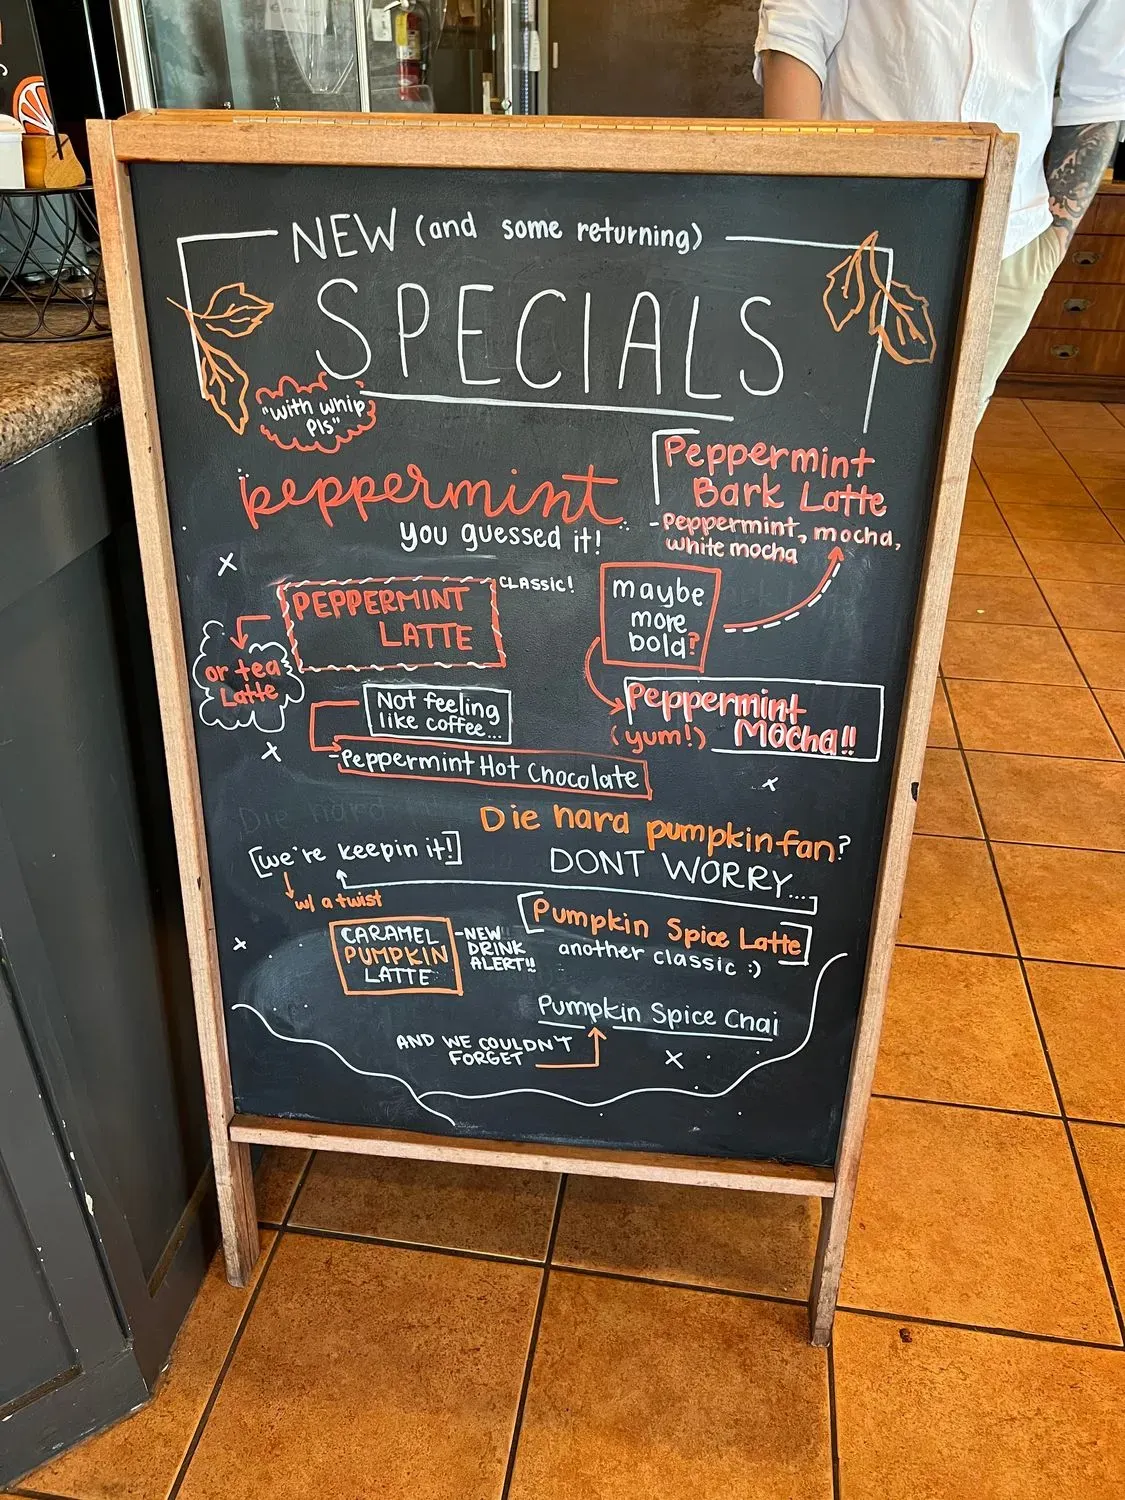 NEW (and some returning)
SPECIALS
"with whip
pls"
peppermint
you guessed it!
Peppermint
Bark Latte
- Peppermint, mocha,
white mocha
CLASSIC!
PEPPERMINT
LATTE
or tea
Latte
maybe
more
bold?
Peppermint
(yum!) Mocha!!
Not feeling
like coffee...
-Peppermint Hot Chocolate
Die hard pumpkin fan?
DONT WORRY...
[we're keepin it!]
w/ a twist
CARAMEL
PUMPKIN
LATTE
-NEW
DRINK
ALERT!!
[Pumpkin Spice Latte]
another classic :)
Pumpkin Spice Chai
AND WE COULDN'T
FORGET